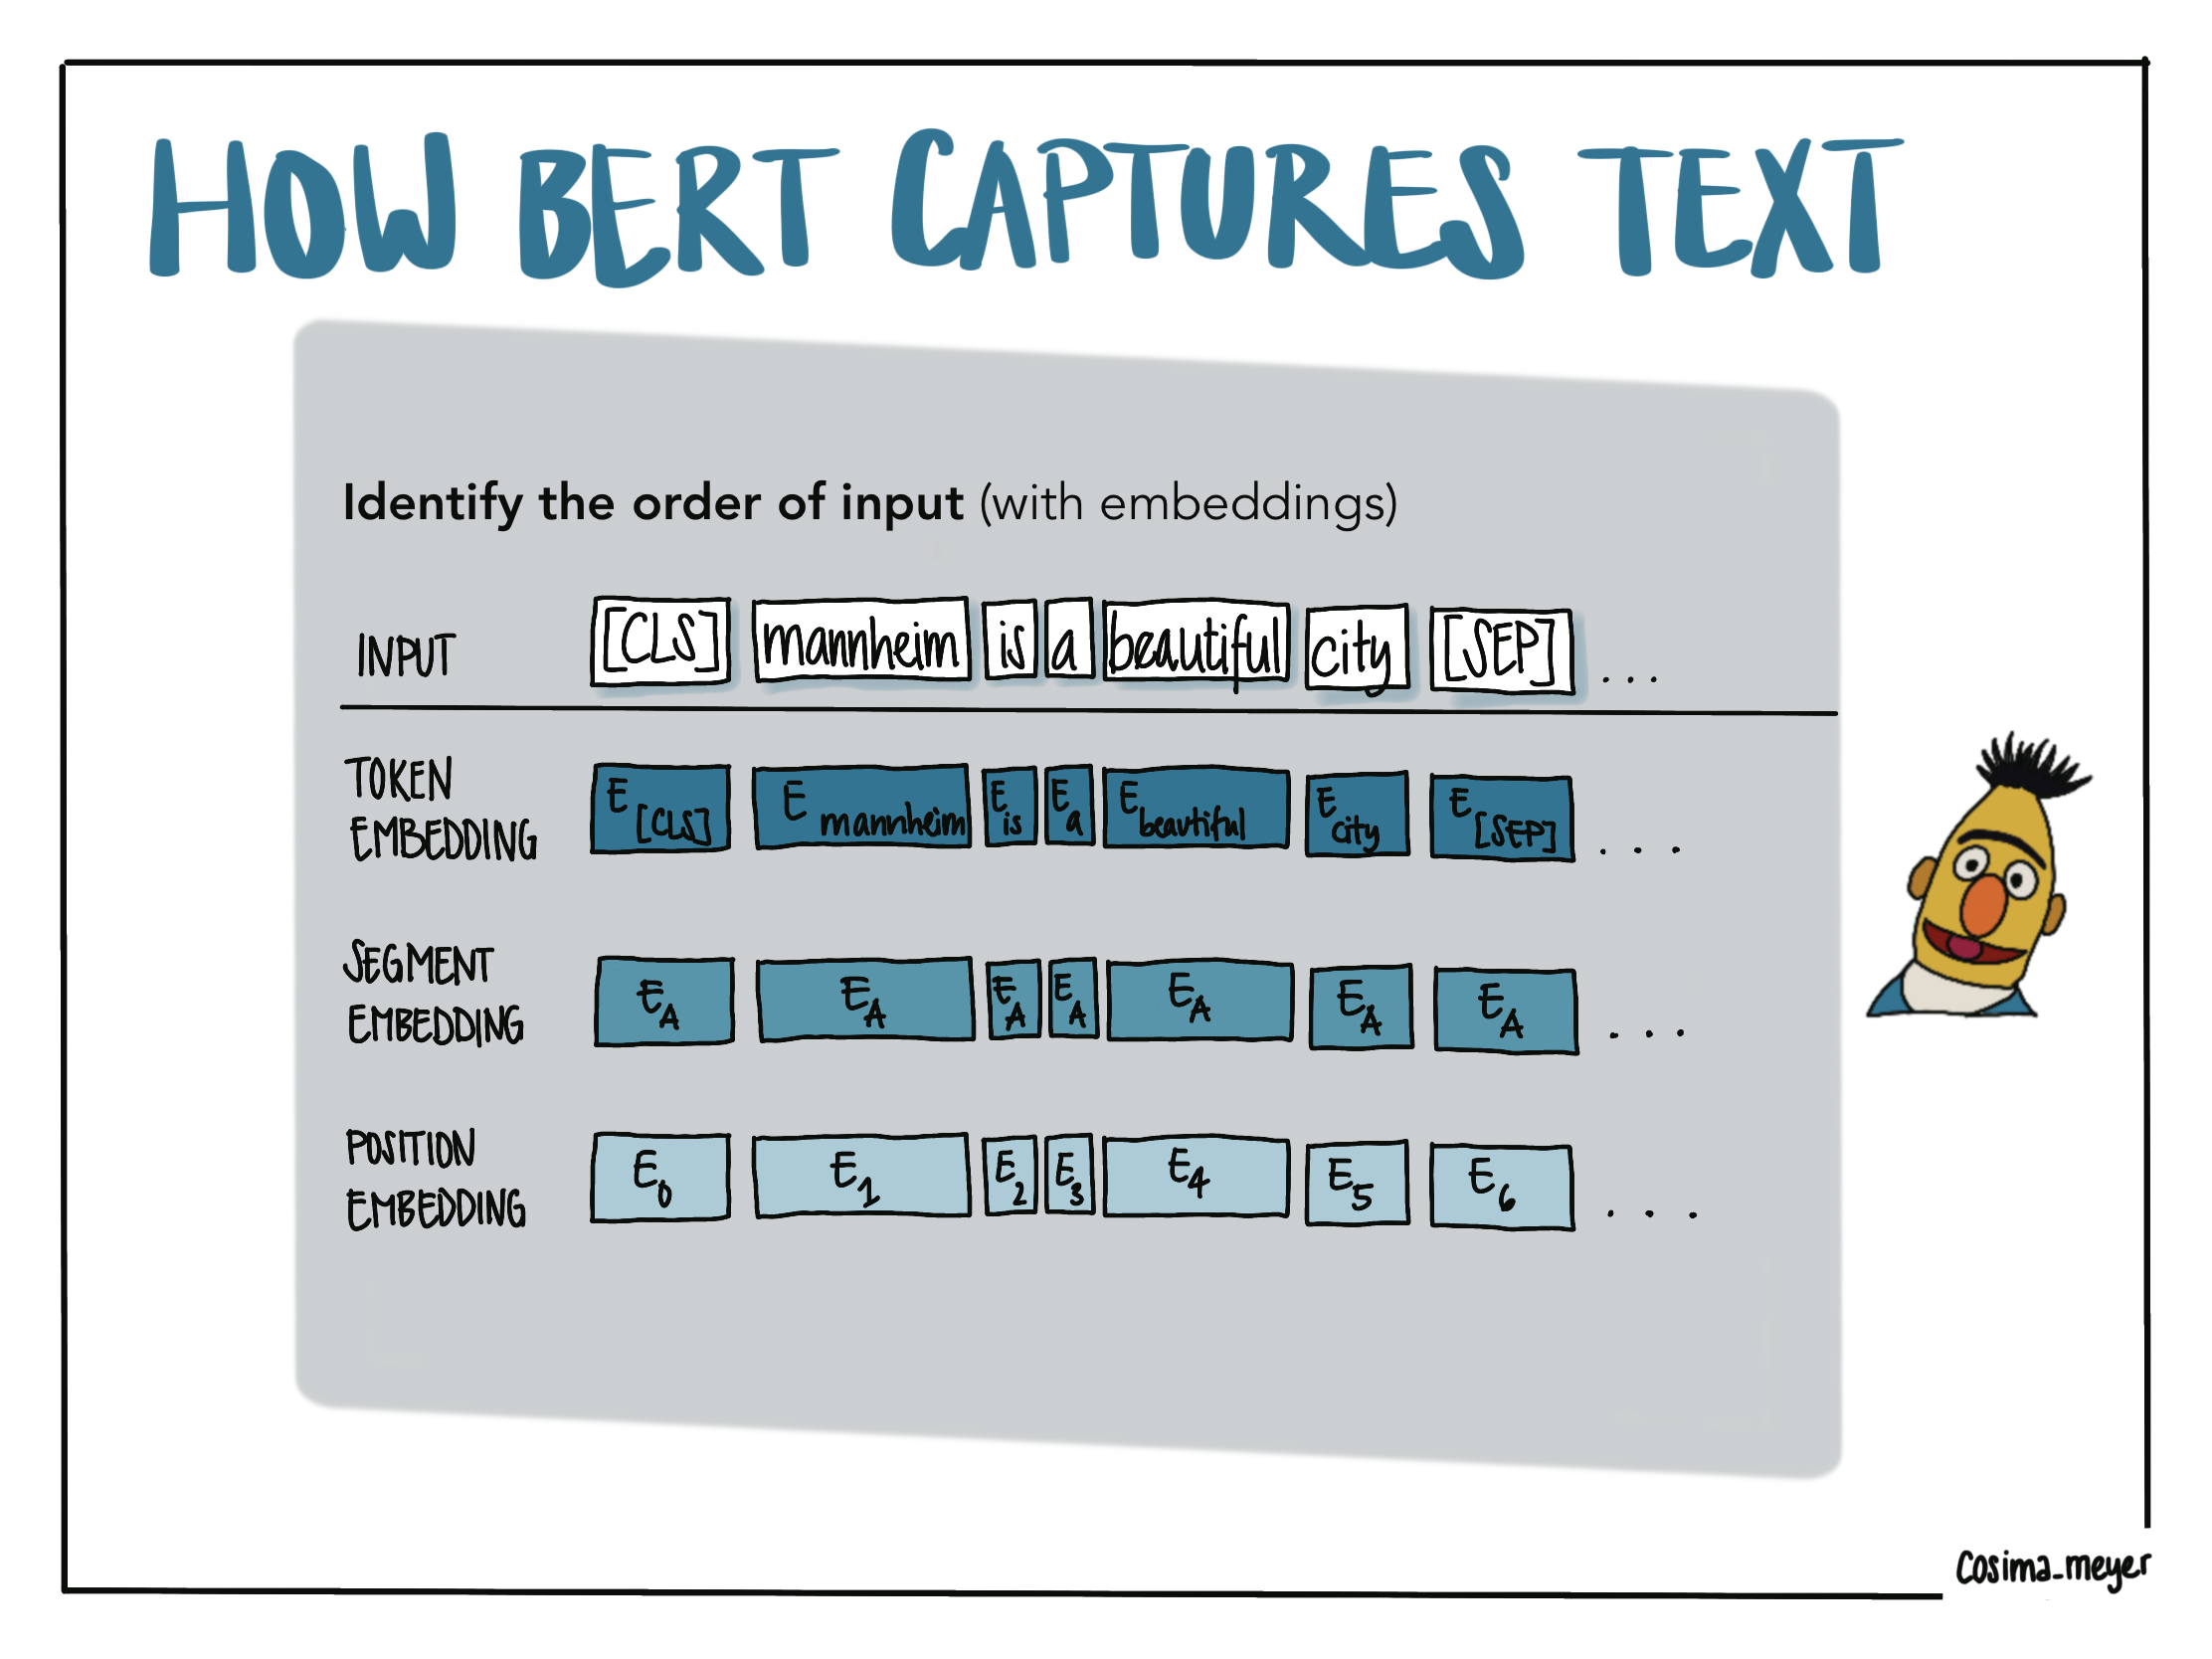 HOW BERT CAPTURES TEXT
Identify the order of input (with embeddings)
INPUT [CLS] mannheim is a beautiful city [SEP] ...
TOKEN
EMBEDDING
E [CLS] E mannheim E is E a E beautiful E city E [SEP] ...
SEGMENT
EMBEDDING
E A E A E A E A E A E A E A ...
POSITION
EMBEDDING
E 0 E 1 E 2 E 3 E 4 E 5 E 6 ...
cosima_meyer